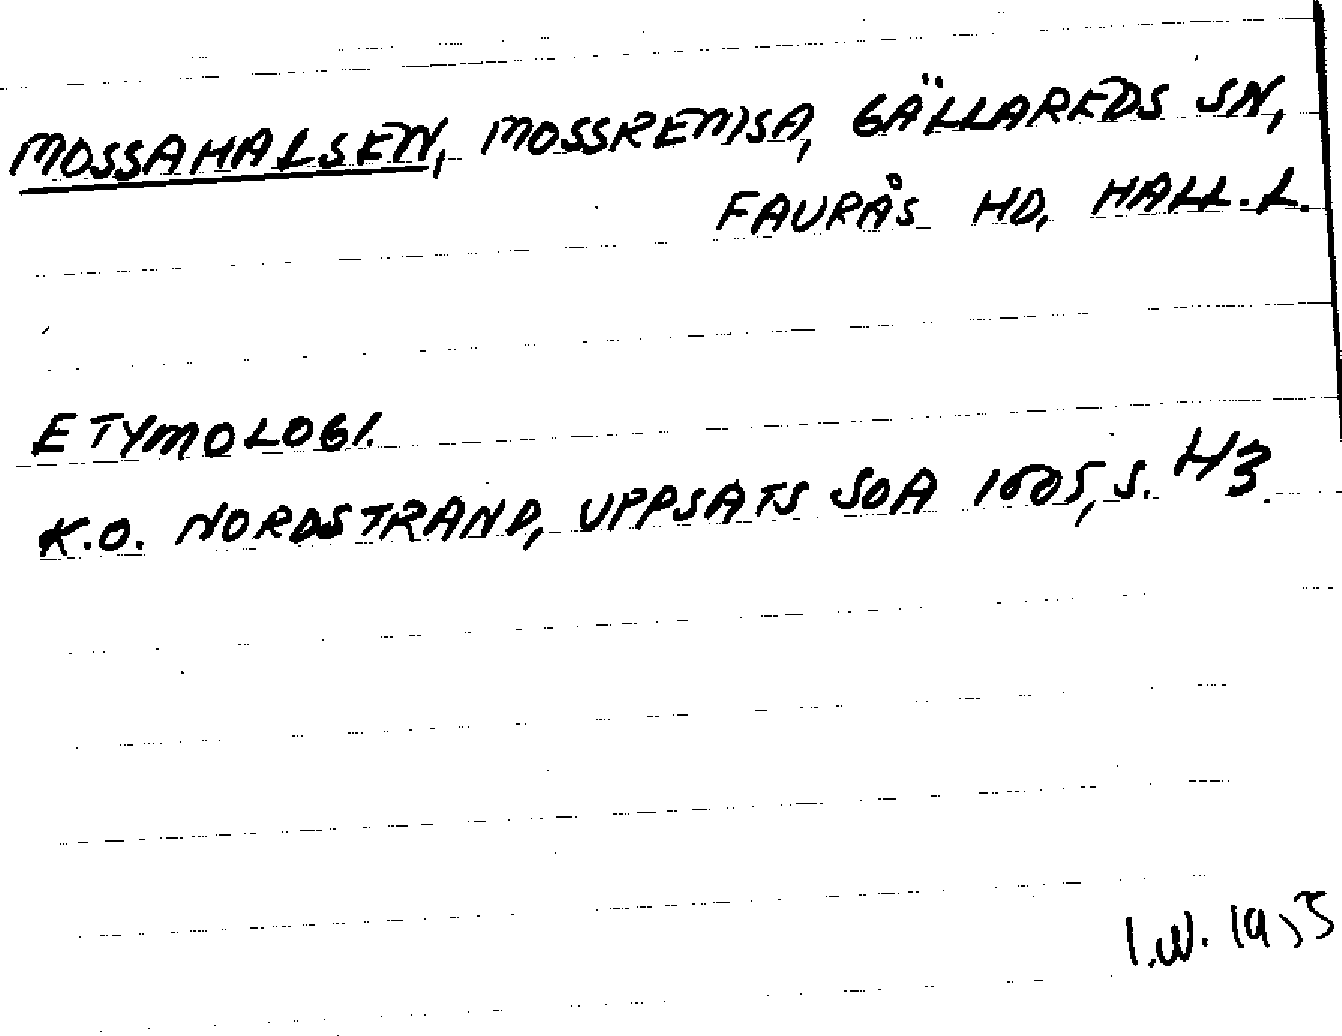 MOSSAHALSEN, MOSSREMSA, GÄLLAREDS SN,
FAURÅS HD, HALL.L.
ETYMOLOGI.
K.O. NORDSTRAND, UPPSATS SOA 1605, S. 43.
I.W. 1955